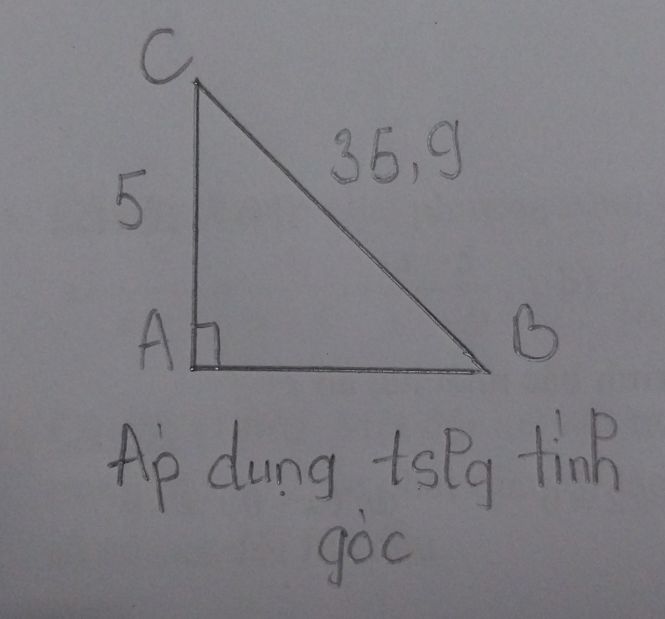 C
35,9
5
A
B
Áp dụng tslg tính
góc